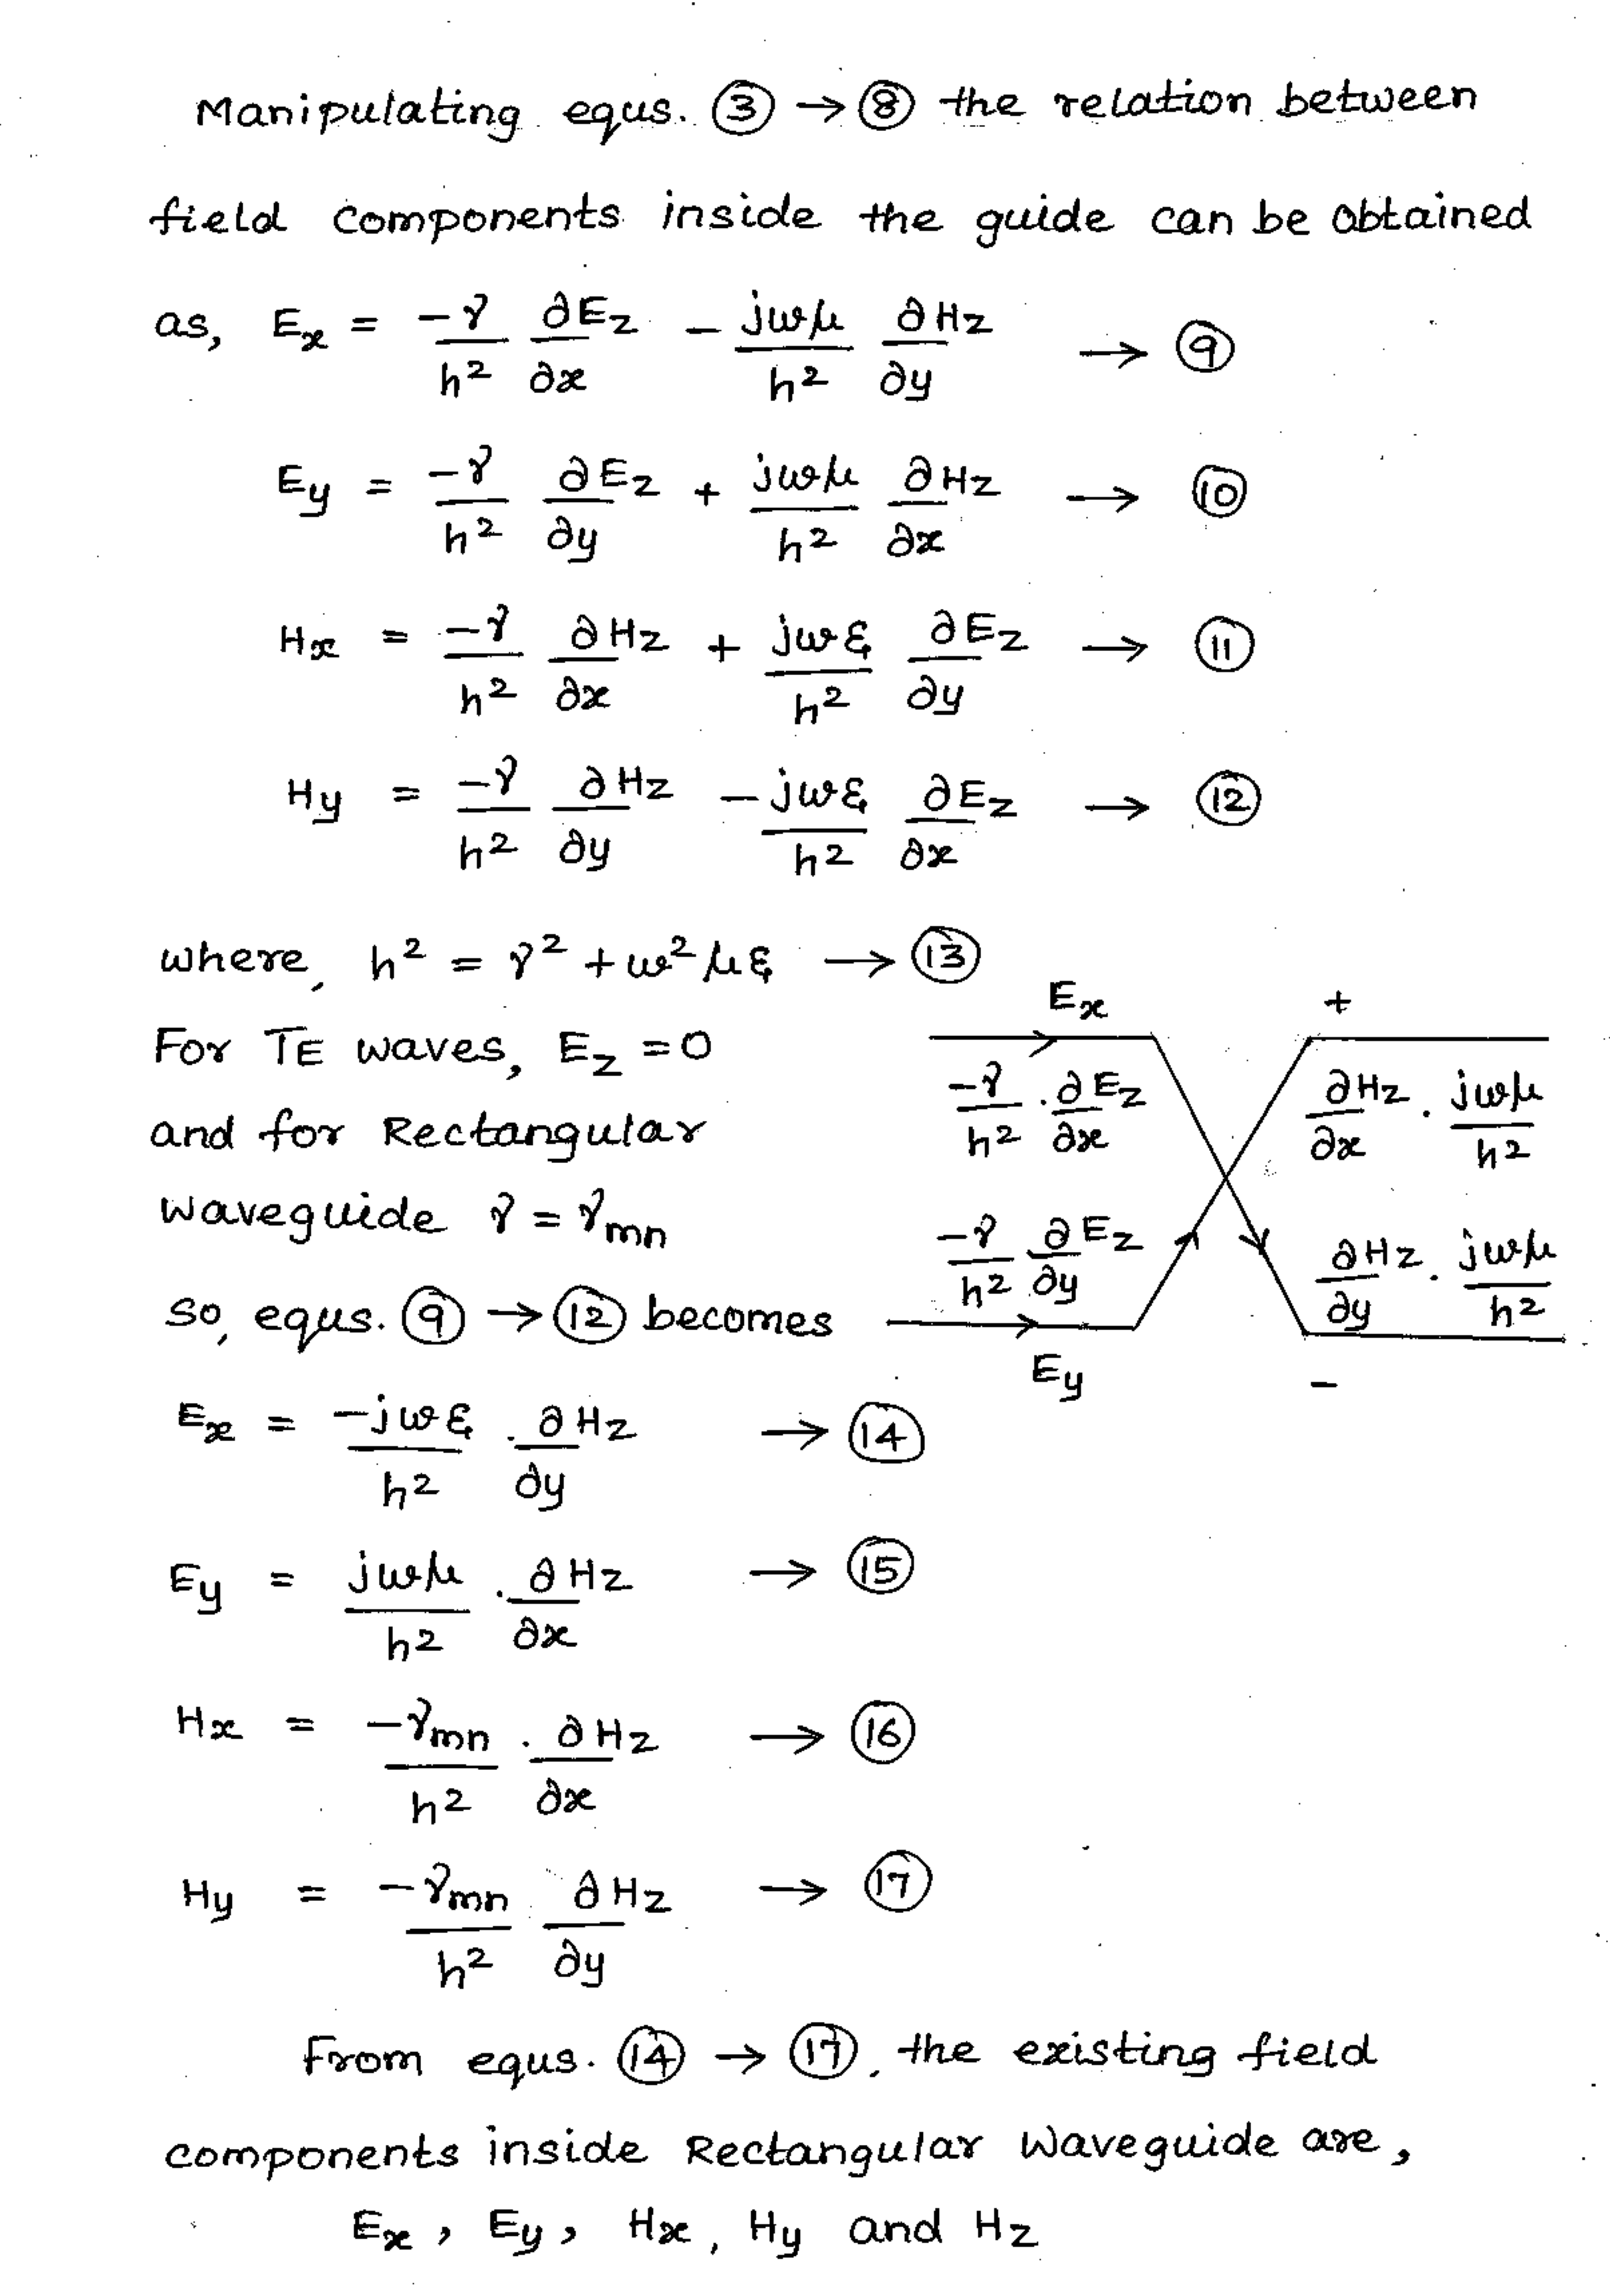 Manipulating equs. ③ → ⑧ the relation between
field components inside the guide can be obtained
as, Ex = -γ/h² ∂Ez/∂x - jωμ/h² ∂Hz/∂y → ⑨
Ey = -γ/h² ∂Ez/∂y + jωμ/h² ∂Hz/∂x → ⑩
Hx = -γ/h² ∂Hz/∂x + jωε/h² ∂Ez/∂y → ⑪
Hy = -γ/h² ∂Hz/∂y - jωε/h² ∂Ez/∂x → ⑫
where, h² = γ² + ω²με → ⑬
For TE waves, Ez = 0
and for Rectangular
waveguide γ = γmn
so, equs. ⑨ → ⑫ becomes
Ex +
-γ/h² . ∂Ez/∂x ∂Hz/∂x . jωμ/h²
-γ/h² ∂Ez/∂y ∂Hz/∂y . jωμ/h²
Ey -
Ex = -jωε/h² . ∂Hz/∂y → ⑭
Ey = jωμ/h² . ∂Hz/∂x → ⑮
Hx = -γmn/h² . ∂Hz/∂x → ⑯
Hy = -γmn/h² ∂Hz/∂y → ⑰
From equs. ⑭ → ⑰, the existing field
components inside Rectangular Waveguide are,
Ex, Ey, Hx, Hy and Hz